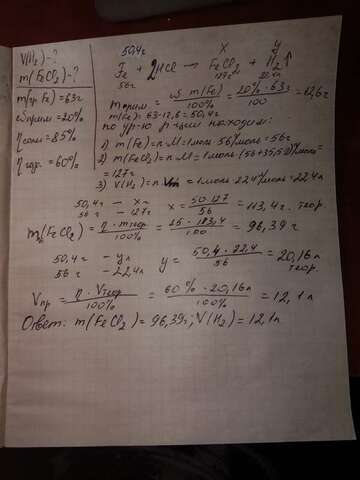 V(H₂)-?
m(FeCl₂)-?
m(гр Fe)=63г
ω прим.=20%
η соли=85%
η газ.=60%
50,4г x y
Fe + 2HCl → FeCl₂ + H₂↑
56г 127г 22,4л
m прим. = ω·m(Fe)/100% = 20%·63г/100 = 12,6г
m(Fe)=63-12,6=50,4г
по ур-ю р-ции находим:
1) m(Fe)=n·M=1моль·56г/моль=56г
2) m(FeCl₂)=n·M=1моль·(56+35,5·2)г/моль=
=127г
3) V(H₂)=n·Vm=1моль·22,4л/моль=22,4л
50,4г - xг
56г - 127г x = 50·127/56 = 113,4г. теор.
m пр(FeCl₂) = η·m теор/100% = 85·113,4/100 = 96,39г
50,4г - yл
56г - 22,4л y = 50,4·22,4/56 = 20,16л теор.
Vпр = η·Vтеор/100% = 60%·20,16л/100% = 12,1л
Ответ: m(FeCl₂)=96,39г; V(H₂)=12,1л